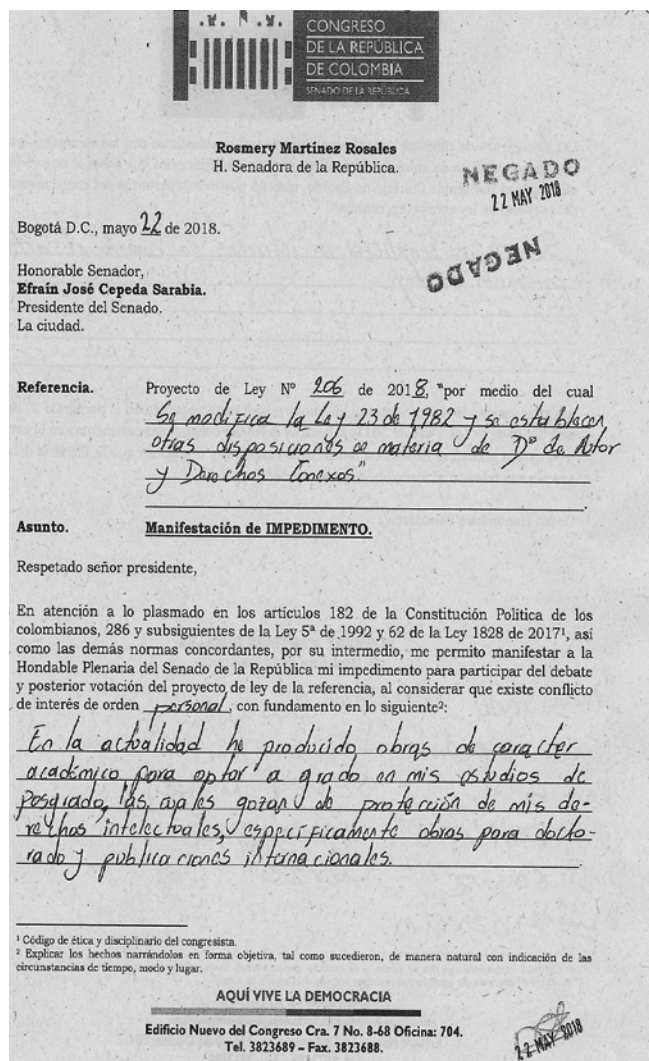 CONGRESO
DE LA REPÚBLICA
DE COLOMBIA
SENADO DE LA REPÚBLICA
Rosmery Martínez Rosales
H. Senadora de la República.
NEGADO
22 MAY 2018
Bogotá D.C., mayo 22 de 2018.
NEGADO
Honorable Senador,
Efraín José Cepeda Sarabia.
Presidente del Senado.
La ciudad.
Referencia. Proyecto de Ley Nº 206 de 2018, "por medio del cual
Se modifica la Ley 23 de 1982 y se establecen
otras disposiciones en materia de Dº de Autor
y Derechos Conexos."
Asunto. Manifestación de IMPEDIMENTO.
Respetado señor presidente,
En atención a lo plasmado en los artículos 182 de la Constitución Política de los
colombianos, 286 y subsiguientes de la Ley 5ª de 1992 y 62 de la Ley 1828 de 2017¹, así
como las demás normas concordantes, por su intermedio, me permito manifestar a la
Hondable Plenaria del Senado de la República mi impedimento para participar del debate
y posterior votación del proyecto de ley de la referencia, al considerar que existe conflicto
de interés de orden personal, con fundamento en lo siguiente²:
En la actualidad he producido obras de caracter
académico para optar a grado en mis estudios de
Posgrado, las cuales gozan de protección de mis de-
rechos intelectuales, específicamente obras para docto-
rado y publicaciones internacionales.
¹ Código de ética y disciplinario del congresista.
² Explicar los hechos narrándolos en forma objetiva, tal como sucedieron, de manera natural con indicación de las
circunstancias de tiempo, modo y lugar.
AQUÍ VIVE LA DEMOCRACIA
Edificio Nuevo del Congreso Cra. 7 No. 8-68 Oficina: 704.
Tel. 3823689 – Fax. 3823688.
22 MAY 2018